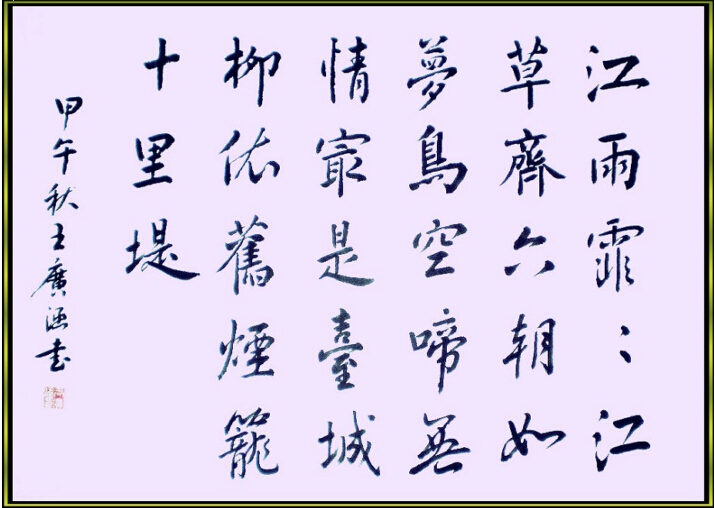 江雨霏〻江
草齊六朝如
夢鳥空啼無
情㝡是臺城
柳依舊煙籠
十里堤
甲午秋王廣涵书